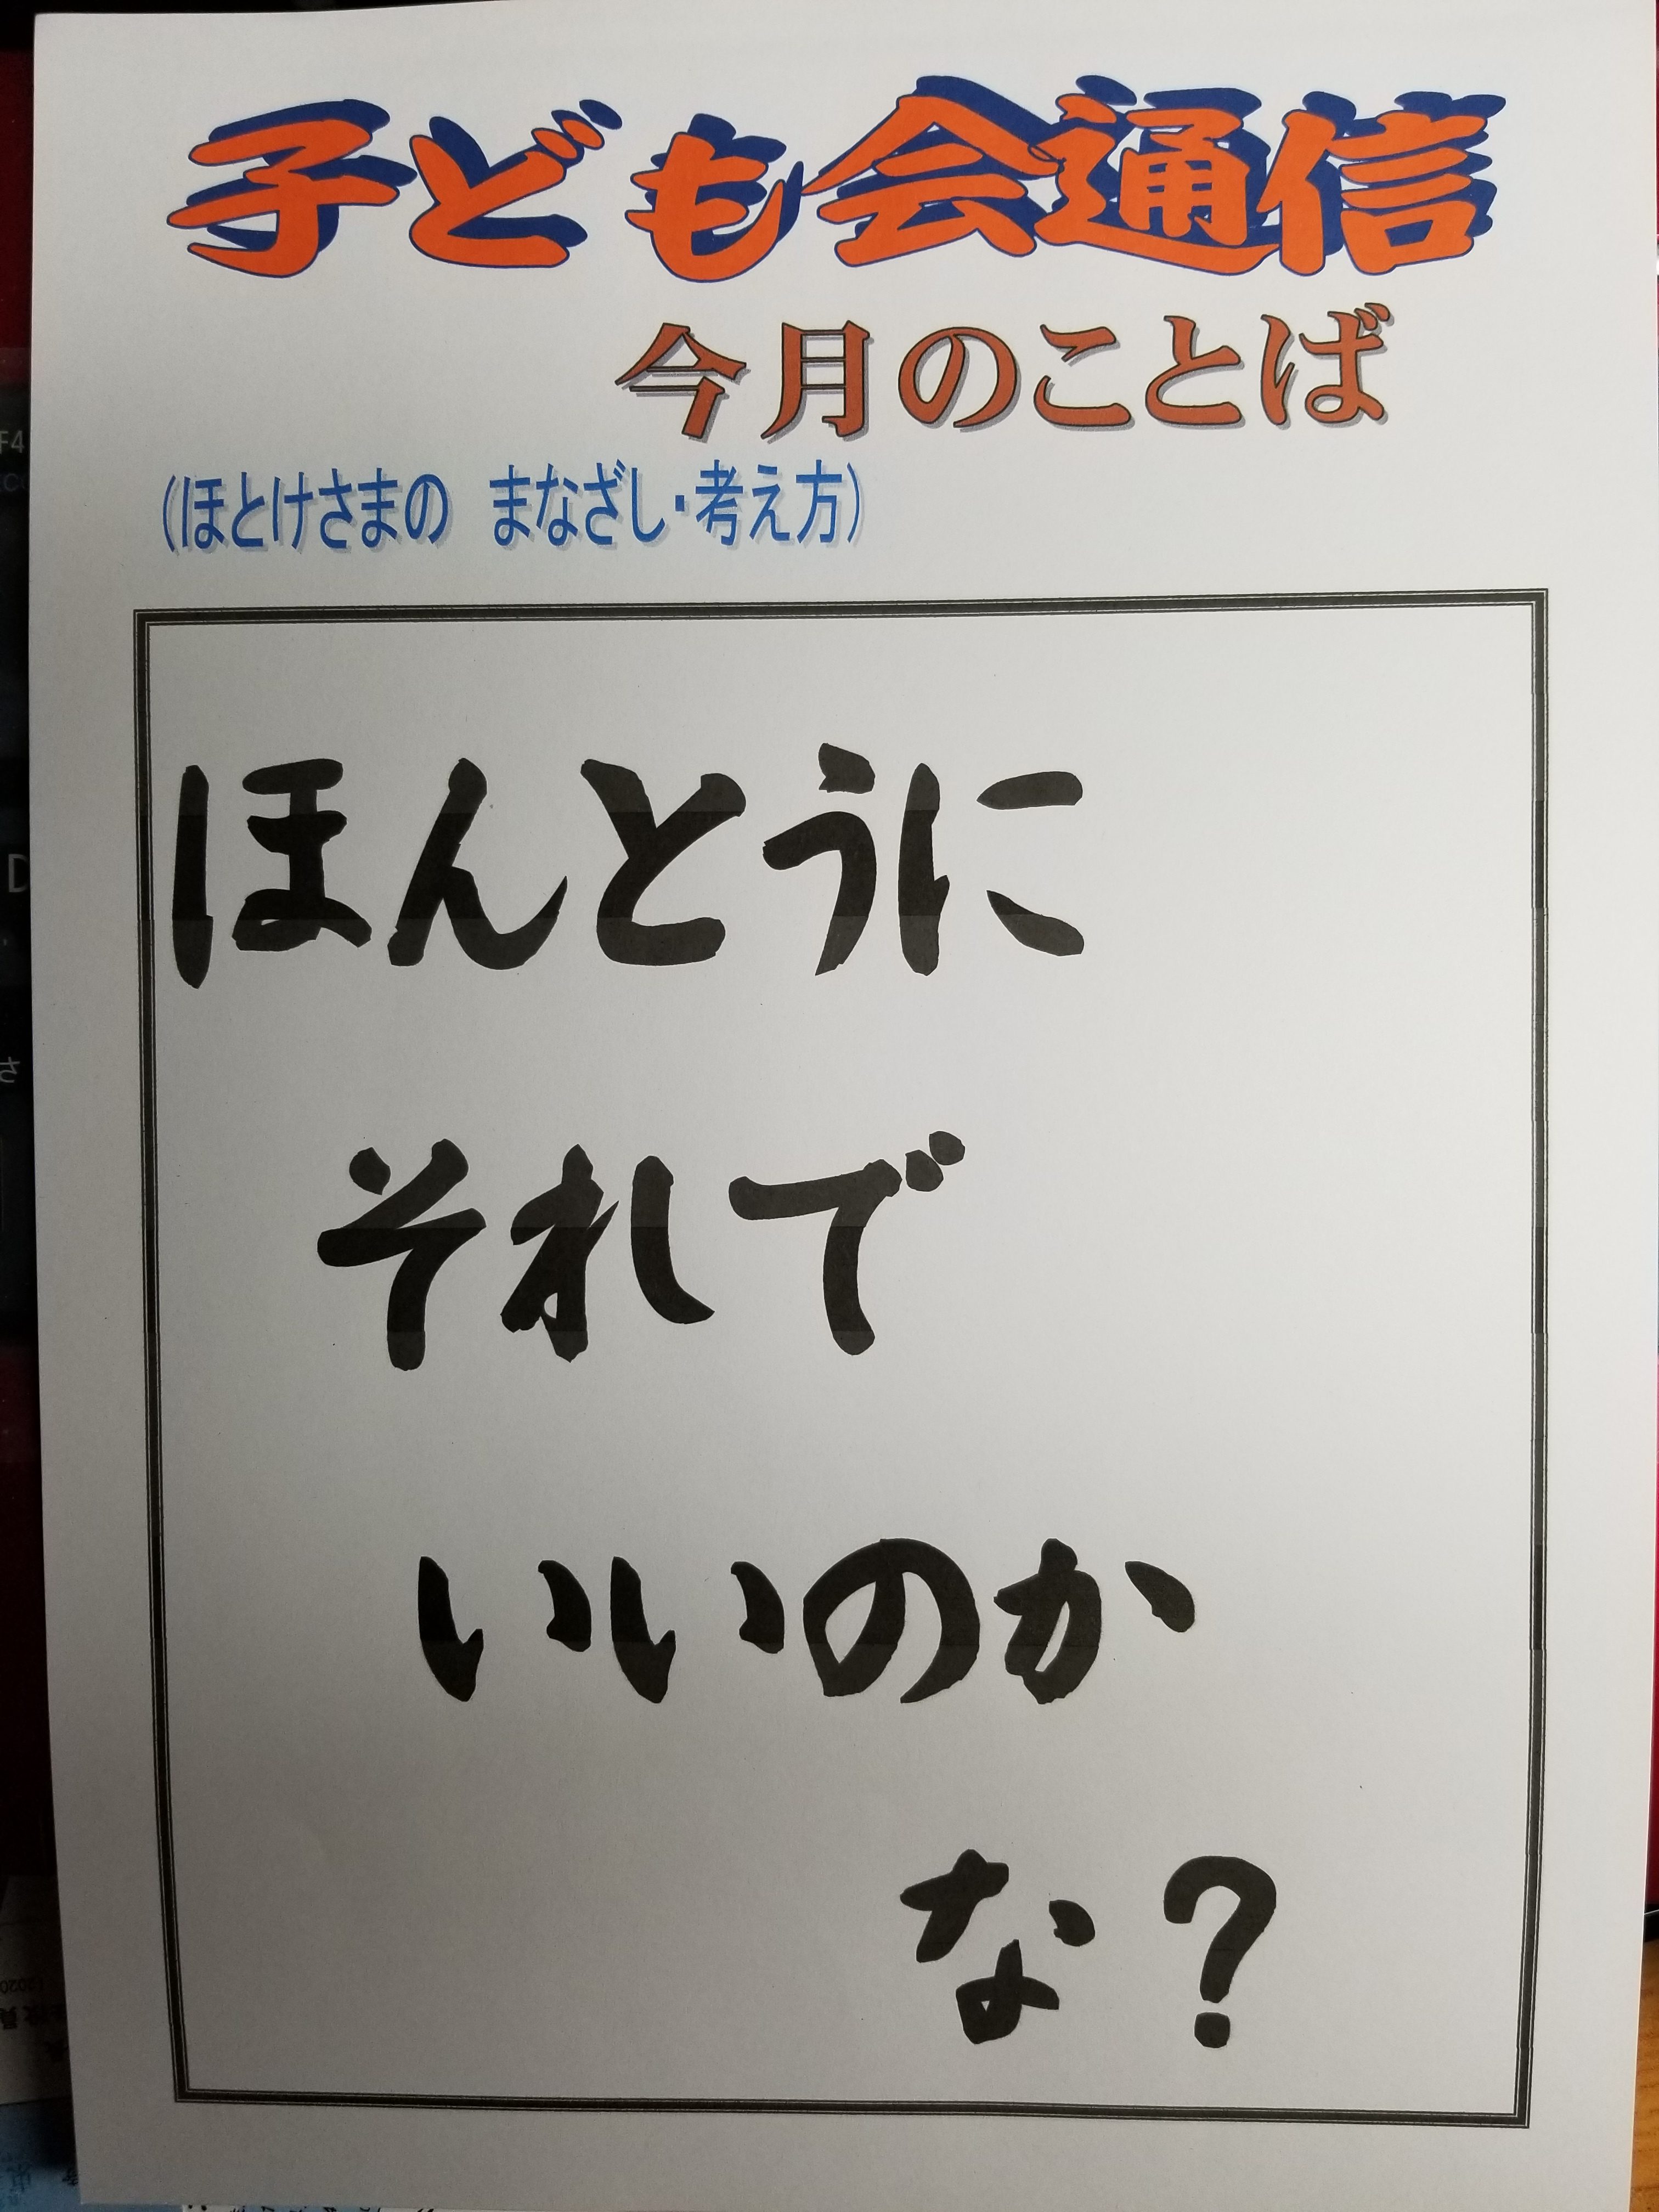 子ども会通信
今月のことば
(ほとけさまの　まなざし・考え方)
ほんとうに
それで
いいのか
な？